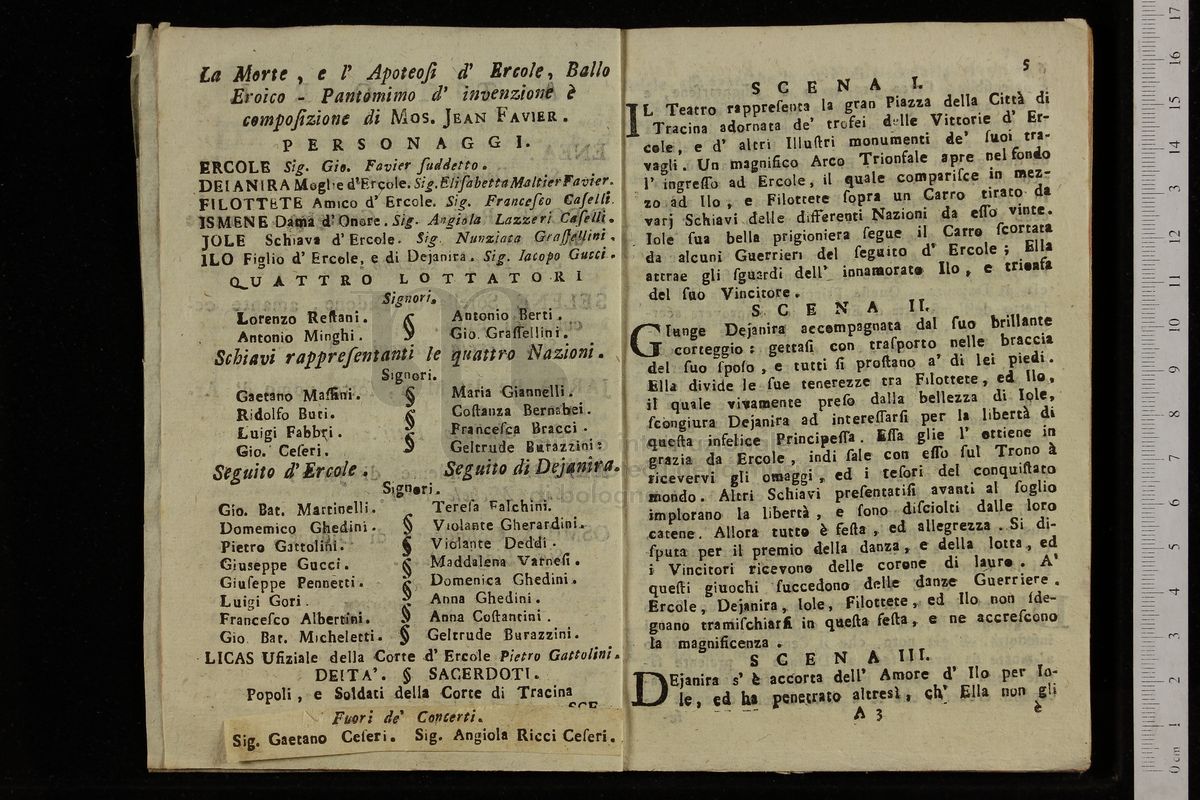 La Morte, e l' Apoteoſi d' Ercole, Ballo
Eroico - Pantomimo d' invenzione è
compoſizione di Mos. Jean Favier.
PERSONAGGI.
ERCOLE Sig. Gio. Favier ſuddetto.
DEIANIRA Moglie d'Ercole. Sig. Eliſabetta Maltier Favier.
FILOTTETE Amico d' Ercole. Sig. Franceſco Caſelli.
ISMENE Dama d'Onore. Sig. Angiola Lazzeri Caſelli.
JOLE Schiava d' Ercole. Sig. Nunziata Graſſellini.
ILO Figlio d' Ercole, e di Dejanira. Sig. Iacopo Gucci.
QUATTRO LOTTATORI
Signori.
Lorenzo Reſtani. § Antonio Berti.
Antonio Minghi. § Gio. Graſſellini.
Schiavi rappreſentanti le quattro Nazioni.
Signori.
Gaetano Maſſini. § Maria Giannelli.
Ridolfo Buti. § Coſtanza Bernabei.
Luigi Fabbri. § Franceſca Bracci.
Gio. Ceſeri. § Geltrude Burazzini:
Seguito d'Ercole. Seguito di Dejanira.
Signori.
Gio. Bat. Martinelli. § Tereſa Falchini.
Domemico Ghedini. § Violante Gherardini.
Pietro Gattolini. § Violante Deddi.
Giuseppe Gucci. § Maddalena Varneſi.
Giuſeppe Pennetti. § Domenica Ghedini.
Luigi Gori. § Anna Ghedini.
Franceſco Albertini. § Anna Coſtantini.
Gio. Bat. Micheletti. § Geltrude Burazzini.
LICAS Ufiziale della Corte d' Ercole Pietro Gattolini.
DEITA'. § SACERDOTI.
Popoli, e Soldati della Corte di Tracina
SCE
Fuori de' Concerti.
Sig. Gaetano Ceſeri. Sig. Angiola Ricci Ceſeri.
5
SCENA I.
IL Teatro rappreſenta la gran Piazza della Città di
Tracina adornata de' trofei delle Vittorie d' Er-
cole, e d' altri Illuſtri monumenti de' ſuoi tra-
vagli. Un magnifico Arco Trionfale apre nel fondo
l' ingreſſo ad Ercole, il quale compariſce in mez-
zo ad Ilo, e Filottete ſopra un Carro tirato da
varj Schiavi delle differenti Nazioni da eſſo vinte.
Iole ſua bella prigioniera ſegue il Carro ſcortata
da alcuni Guerrieri del ſeguito d' Ercole; Ella
attrae gli ſguardi dell' innamorato Ilo, e trionfa
del ſuo Vincitore.
SCENA II.
GIunge Dejanira accompagnata dal ſuo brillante
corteggio: gettaſi con traſporto nelle braccia
del ſuo ſpoſo, e tutti ſi proſtano a' di lei piedi.
Ella divide le ſue tenerezze tra Filottete, ed Ilo,
il quale vivamente preſo dalla bellezza di Iole,
ſcongiura Dejanira ad intereſſarſi per la libertà di
queſta infelice Principeſſa. Eſſa glie l' ottiene in
grazia da Ercole, indi ſale con eſſo ſul Trono à
ricevervi gli omaggi, ed i teſori del conquiſtato
mondo. Altri Schiavi preſentatiſi avanti al ſoglio
implorano la libertà, e ſono diſciolti dalle loro
catene. Allora tutto è feſta, ed allegrezza. Si di-
ſputa per il premio della danza, e della lotta, ed
i Vincitori ricevono delle corone di lauro. A'
queſti giuochi ſuccedono delle danze Guerriere.
Ercole, Dejanira, Iole, Filottete, ed Ilo non ſde-
gnano tramiſchiarſi in queſta feſta, e ne accreſcono
la magnificenza.
SCENA III.
DEjanira s' è accorta dell' Amore d' Ilo per Io-
le, ed ha penetrato altresì, ch' Ella non gli
A 3 è